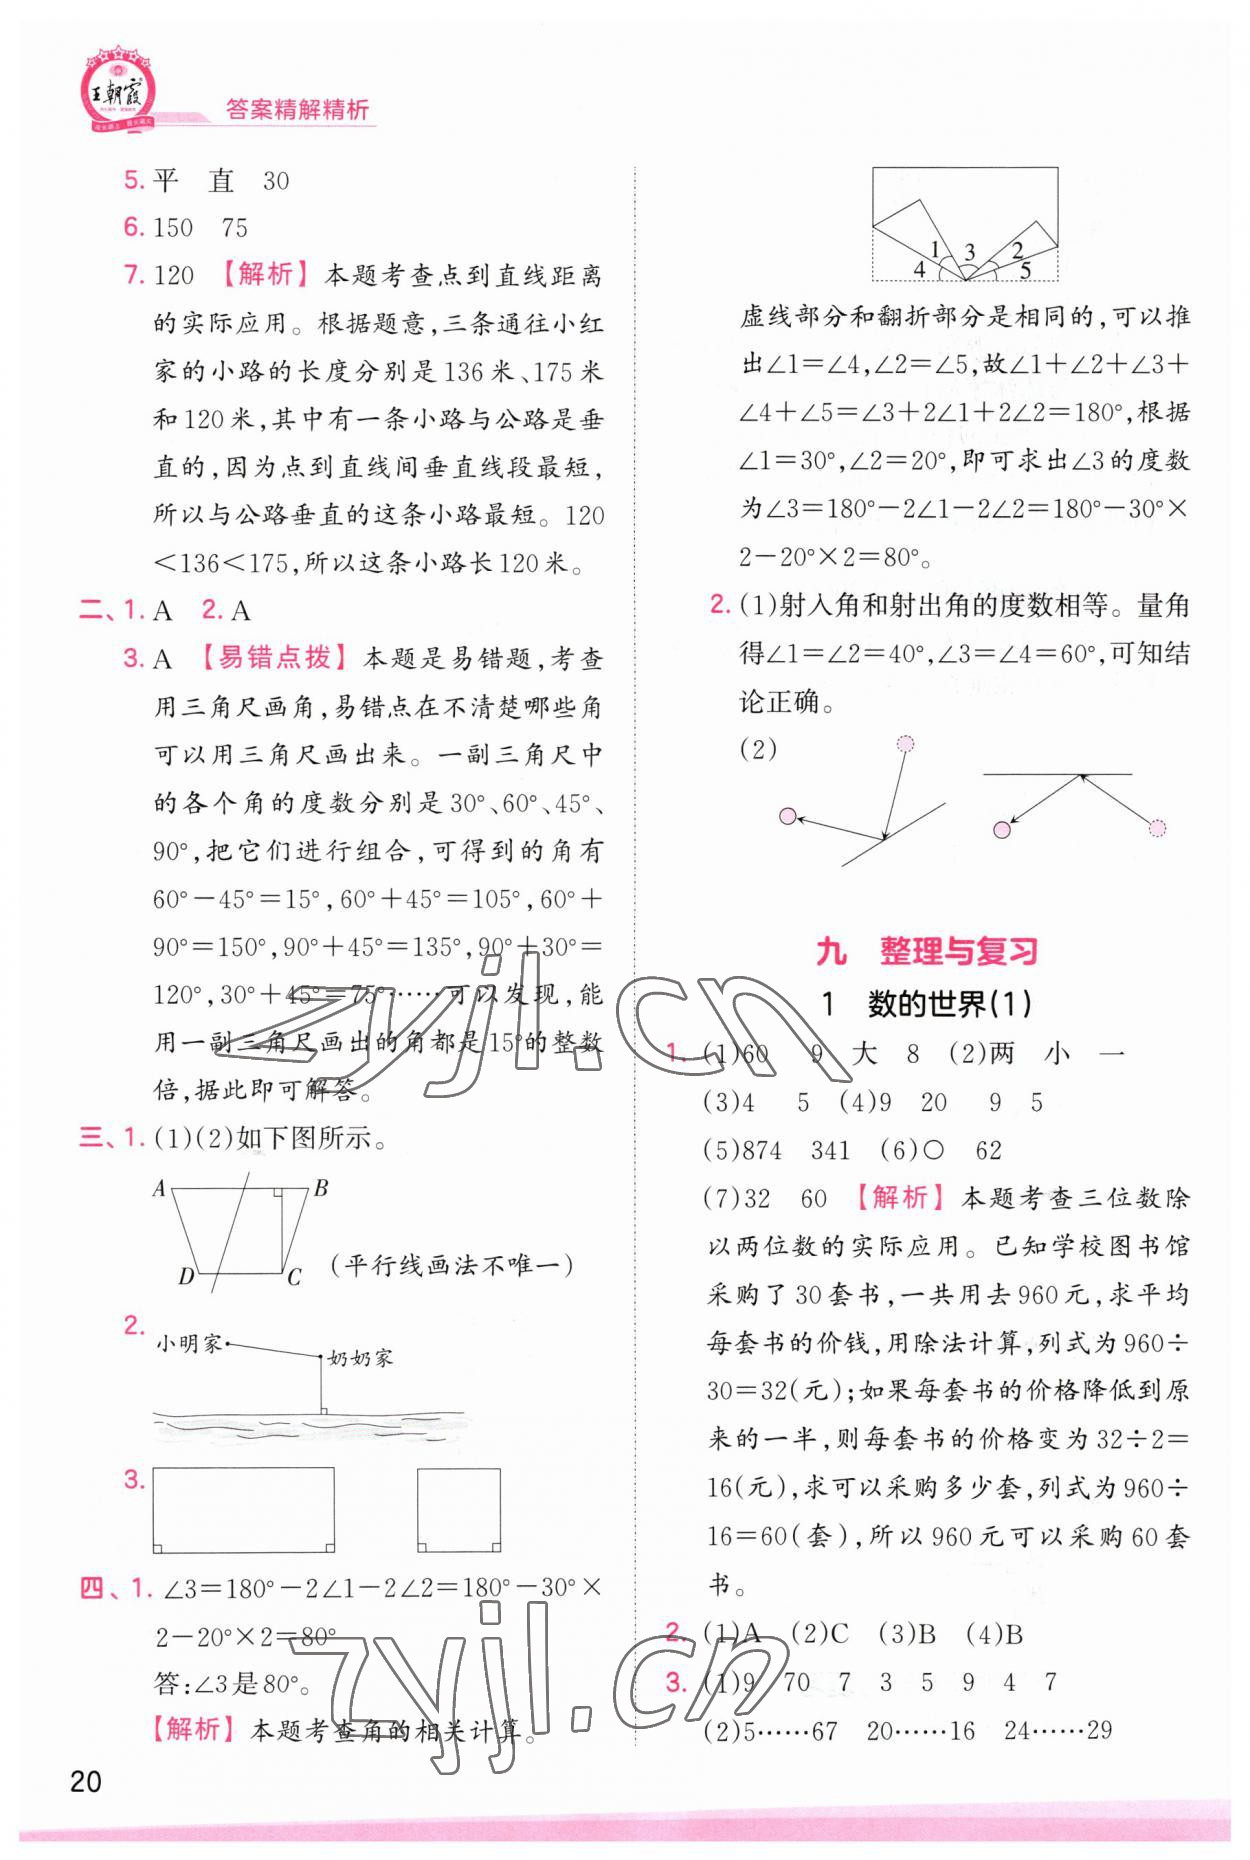 王朝霞
答案精解精析
5. 平 直 30
6. 150 75
7. 120 【解析】本题考查点到直线距离
的实际应用。根据题意,三条通往小红
家的小路的长度分别是136米、175米
和120米,其中有一条小路与公路是垂
直的,因为点到直线间垂直线段最短,
所以与公路垂直的这条小路最短。120
<136<175,所以这条小路长120米。
二、1. A 2. A
3. A 【易错点拨】本题是易错题,考查
用三角尺画角,易错点在不清楚哪些角
可以用三角尺画出来。一副三角尺中
的各个角的度数分别是30°、60°、45°、
90°,把它们进行组合,可得到的角有
60°-45°=15°,60°+45°=105°,60°+
90°=150°,90°+45°=135°,90°+30°=
120°,30°+45°=75°……可以发现,能
用一副三角尺画出的角都是15°的整数
倍,据此即可解答。
三、1. (1)(2)如下图所示。
A B
D C (平行线画法不唯一)
2.
小明家
奶奶家
3.
四、1. ∠3=180°-2∠1-2∠2=180°-30°×
2-20°×2=80°
答:∠3是80°。
【解析】本题考查角的相关计算。
1 3 2
4 5
虚线部分和翻折部分是相同的,可以推
出∠1=∠4,∠2=∠5,故∠1+∠2+∠3+
∠4+∠5=∠3+2∠1+2∠2=180°,根据
∠1=30°,∠2=20°,即可求出∠3的度数
为∠3=180°-2∠1-2∠2=180°-30°×
2-20°×2=80°。
2. (1)射入角和射出角的度数相等。量角
得∠1=∠2=40°,∠3=∠4=60°,可知结
论正确。
(2)
九 整理与复习
1 数的世界(1)
1. (1)60 9 大 8 (2)两 小 一
(3)4 5 (4)9 20 9 5
(5)874 341 (6)○ 62
(7)32 60 【解析】本题考查三位数除
以两位数的实际应用。已知学校图书馆
采购了30套书,一共用去960元,求平均
每套书的价钱,用除法计算,列式为960÷
30=32(元);如果每套书的价格降低到原
来的一半,则每套书的价格变为32÷2=
16(元),求可以采购多少套,列式为960÷
16=60(套),所以960元可以采购60套
书。
2. (1)A (2)C (3)B (4)B
3. (1)9 70 7 3 5 9 4 7
(2)5……67 20……16 24……29
zyjl.cn
zyjl.cn
20